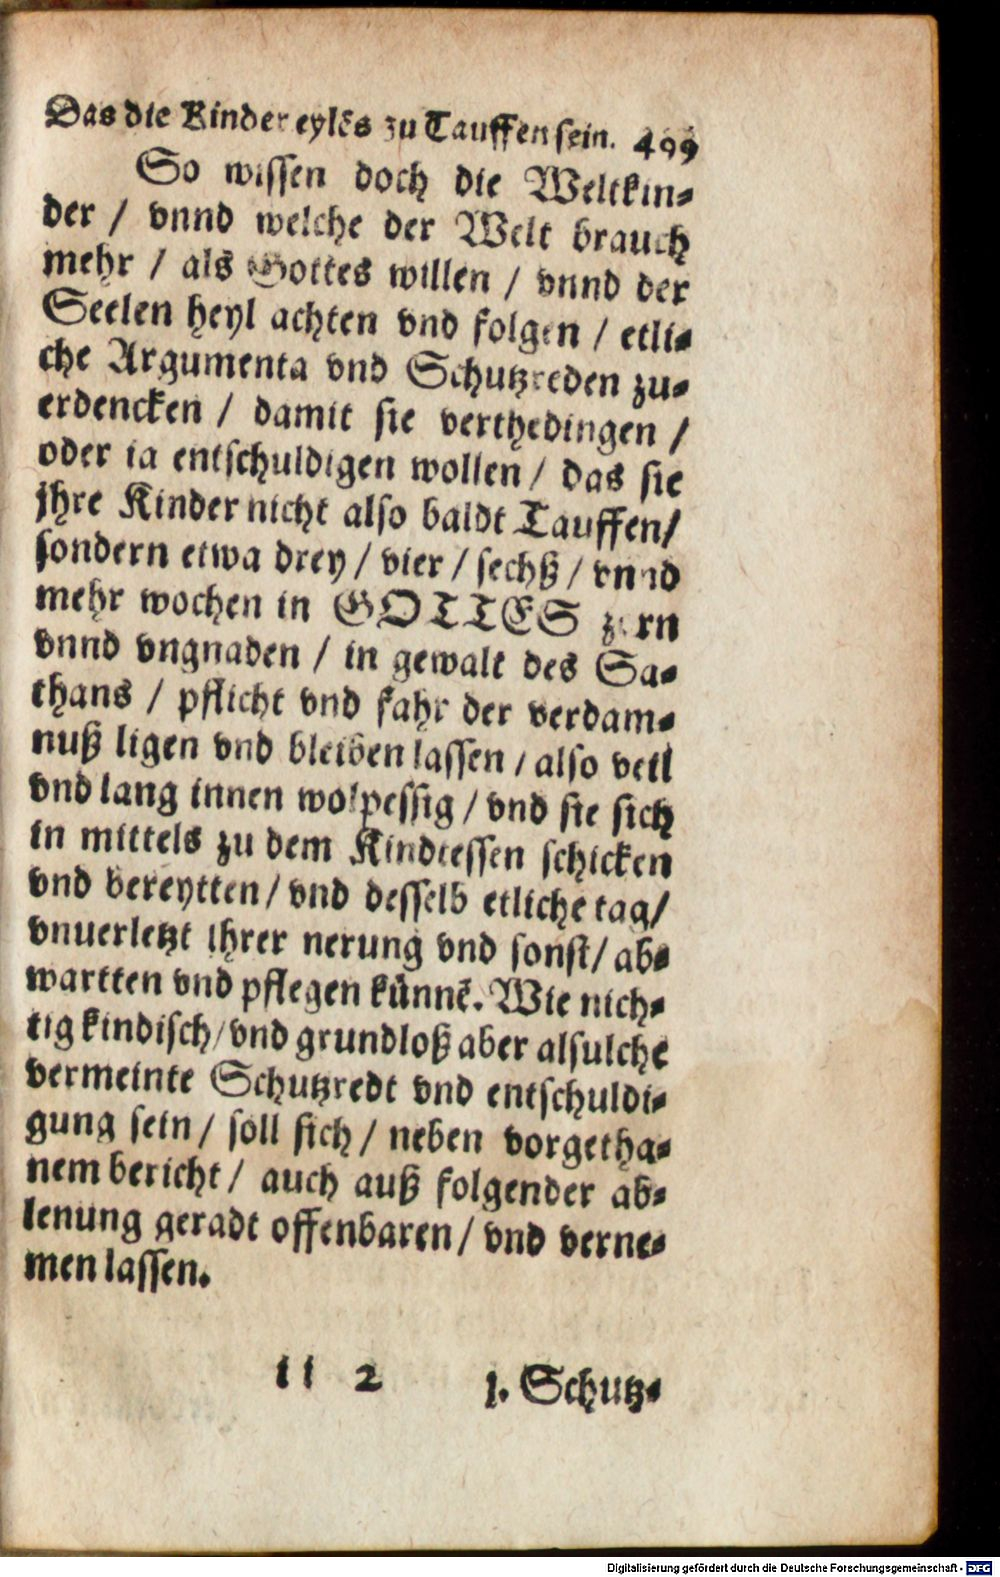 Das die Kinder eylēs zu Tauffen sein. 499
So wissen doch die Weltkin-
der / vnnd welche der Welt brauch
mehr / als Gottes willen / vnnd der
Seelen heyl achten vnd folgen / etli-
che Argumenta vnd Schutzreden zu-
erdencken / damit sie verthedingen /
oder ia entschuldigen wollen / das sie
jhre Kinder nicht also baldt Tauffen/
sondern etwa drey / vier / sechß / vnnd
mehr wochen in GOTTES zorn
vnnd vngnaden / in gewalt des Sa-
thans / pflicht vnd fahr der verdam-
nuß ligen vnd bleiben lassen / also veil
vnd lang innen wolpessig / vnd sie sich
in mittels zu dem Kindtessen schicken
vnd bereytten / vnd desselb etliche tag/
vnuerletzt ihrer nerung vnd sonst/ ab-
wartten vnd pflegen künnē. Wie nich-
tig kindisch/vnd grundloß aber alsulche
vermeinte Schutzredt vnd entschuldi-
gung sein / soll sich / neben vorgetha-
nem bericht / auch auß folgender ab-
lenung geradt offenbaren / vnd verne-
men lassen.
Ii 2 1. Schutz-
Digitalisierung gefördert durch die Deutsche Forschungsgemeinschaft - DFG